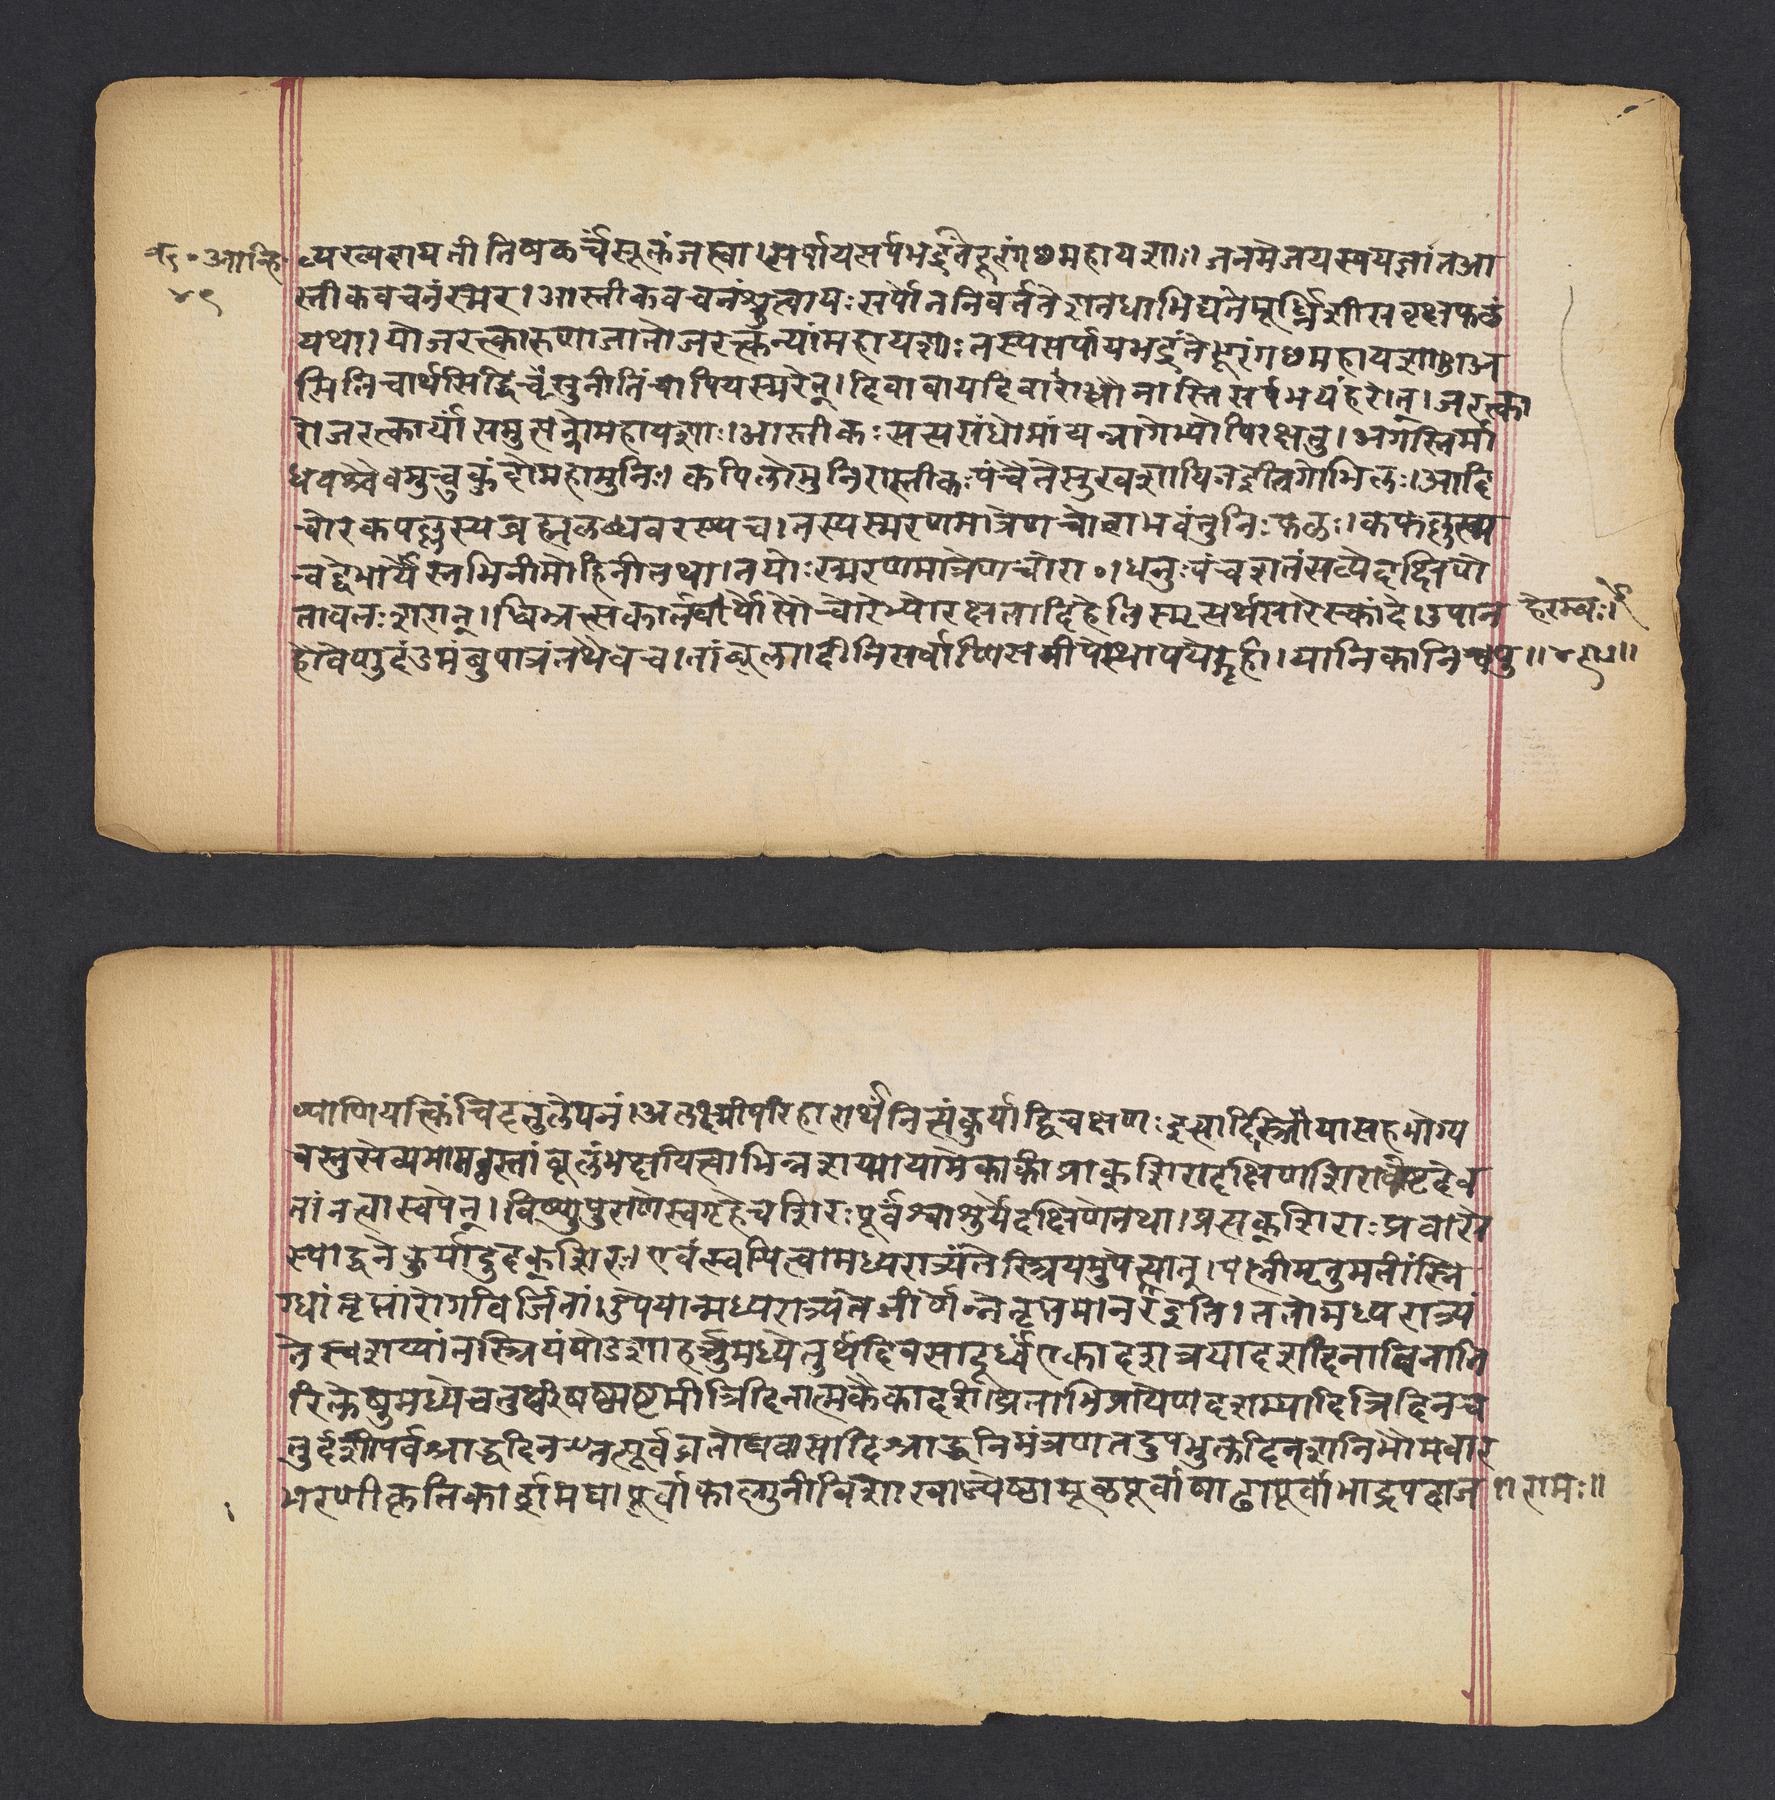 सं॰ आन्हि॰
४९
व्यख्यदायतीतिषळर्चंसूक्तंजप्त्वा।सर्पापसर्पभद्रंतेदूरंगछमहायशाः।जनमेजयस्ययज्ञांतेआ
स्तीकवचनंस्मर।आस्तीकवचनंश्रुत्वायःसर्पोननिवर्तते।शतधाभिद्यतेमूर्ध्निशींसवृक्षफळं
यथा।योजरत्कारुणाजातोजरत्कन्यांमहायशाः।तस्यसर्पापभद्रंतेदूरंगछमहायशाः।अ
सितिचार्थसिद्धिंचसुनीतिंचापियःस्मरेत्।दिवावायदिवारात्रौनास्तिसर्पभयंहरेत्।जरत्का
रोजरत्कार्यांसमुत्पन्नोमहायशाः।आस्तीकःसत्यसंधोमांपन्नगेभ्योपिरक्षतु।अगस्तिर्मा
धवश्चैवमुचुकुंदोमहामुनिः।कपिलोमुनिरास्तीकःपंचैतेसुखशायिनइतिगोभिलः।आदि
चोरकपल्लस्यब्रह्मलब्धवरस्यच।तस्यस्मरणमात्रेणचोराभवंतुनिःफळः।कफल्लस्य
चद्वेभार्येस्तंभिनीमोहिनीतथा।तयोःस्मरणमात्रेणचोरा॰।धनुःपंचशतंसव्येदक्षिणे
तावतःशरान्।बिभ्रत्सकार्तवीर्योसौचोरेभ्योरक्षतादिहेतिस्मृत्यर्थसारेस्कांदे।उपान
हौवेणुदंडमंबुपात्रंतथैवच।तांबूलादीनिसर्वाणिसमीपेस्थापयेद्गृही।यानिकानिचपु
हेरम्बः॥
॥४९॥
ष्पाणियत्किंचिदनुलेपनं।अलक्ष्मीपरिहारार्थंनित्यंकुर्याद्विचक्षणःइत्यादिस्त्रियासहभोग्य
वस्तुसेव्यमानस्तांबूलंभक्षयित्वाभिन्नशय्यायामेकाकीप्राक्शिरादक्षिणशिरावेष्टदेव
तांनत्वास्वपेत्।विष्णुपुराणेस्वगृहेचशिरःपूर्वंश्वाशुर्येदक्षिणेतथा।प्रत्यक्शिराःप्रवासे
स्याद्वनेकुर्यादुदक्शिरः।एवंस्वपित्वामध्यरात्र्यंतेस्त्रियमुपेत्यात्।पत्नीमृतुमतींस्नि
ग्धांतृप्तांरोगविर्जितां।उपेयान्मध्यरात्र्यंतेजीर्णेन्नेतृप्तमानसइति।ततोमध्यरात्र्यं
तेस्वशय्यांतस्त्रियंषोडशाहर्त्तुमध्येतुर्थदिवसादूर्ध्वंएकादशत्रयोदशदिनातिनाति
रिक्तेषुमध्येचतुर्थीषष्ठ्यष्टमीत्रिदिनात्मकैकादशीव्रताभिप्रायेणदशम्यादित्रिदिनंच
तुर्दशीपर्वश्राद्धदिनतत्पूर्वव्रतोपवासादिश्राद्धनिमंत्रणतदुपभुक्तदिनशनिभौमवार
भरणीकृत्तिकार्द्रामघापूर्वाफाल्गुनीविशाखाज्येष्ठामूळपूर्वाषाढापूर्वाभाद्रपदाज
॥रामः॥